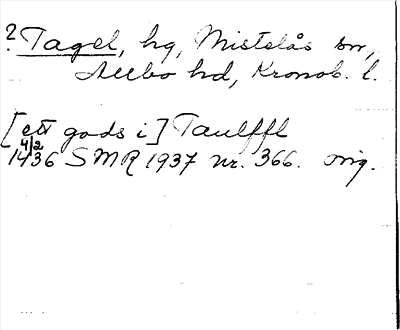 ? Tagel, hg, Mistelås sn,
Allbo hd, Kronob. l.
[ett gods i] Taulffl
4/2
1436 SMR 1937 nr. 366. orig.